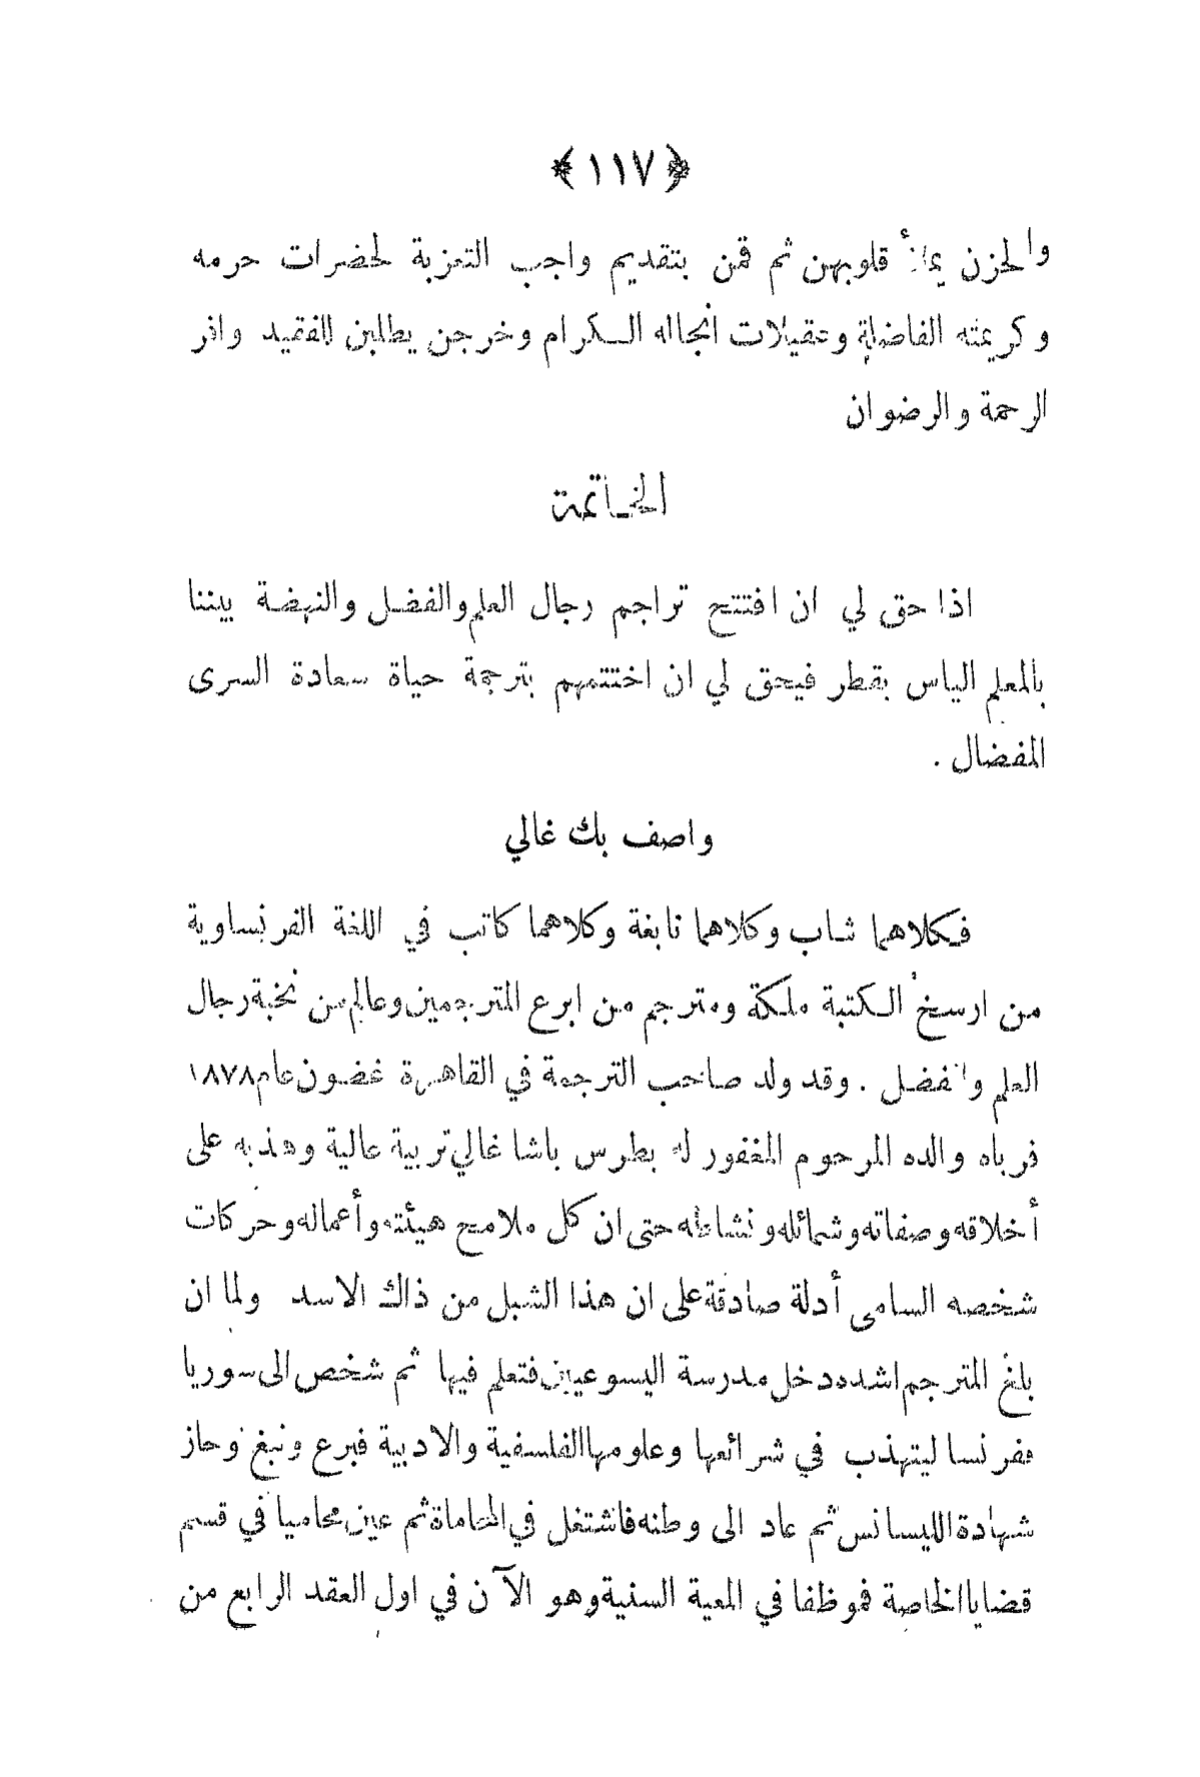 ﴿ ١١٧ ﴾
والحزن يملأ قلوبهن ثم قمن بتقديم واجب التعزية لحضرات حرمه
وكريمته الفاضلة وعقيلات انجاله الكرام وخرجن يطلبن للفقيد وافر
الرحمة والرضوان
الخاتمة
اذا حق لي ان افتتح تراجم رجال العلم والفضل والنهضة بيننا
بالمعلم الياس بقطر فيحق لي ان اختتمهم بترجمة حياة سعادة السرى
المفضال .
واصف بك غالي
فكلاهما شاب وكلاهما نابغة وكلاهما كاتب في اللغة الفرنساوية
من ارسخ الكتبة ملكة ومترجم من ابرع المترجمين وعالم من نخبة رجال
العلم والفضل . وقد ولد صاحب الترجمة في القاهرة غضون عام ١٨٧٨
فرباه والده المرحوم المغفور له بطرس باشا غالي تربية عالية وهذبه على
أخلاقه وصفاته وشمائله ونشاطه حتى ان كل ملامح هيئته وأعماله وحركات
شخصه السامى أدلة صادقة على ان هذا الشبل من ذاك الاسد ولما ان
بلغ المترجم اشده دخل مدرسة اليسوعيين فتعلم فيها ثم شخص الى سوريا
ففرنسا ليتهذب في شرائعها وعلومها الفلسفية والادبية فبرع ونبغ وحاز
شهادة الليسانس ثم عاد الى وطنه فاشتغل في المحاماة ثم عين محاميا في قسم
قضايا الخاصة فموظفا في المعية السنية وهو الآن في اول العقد الرابع من